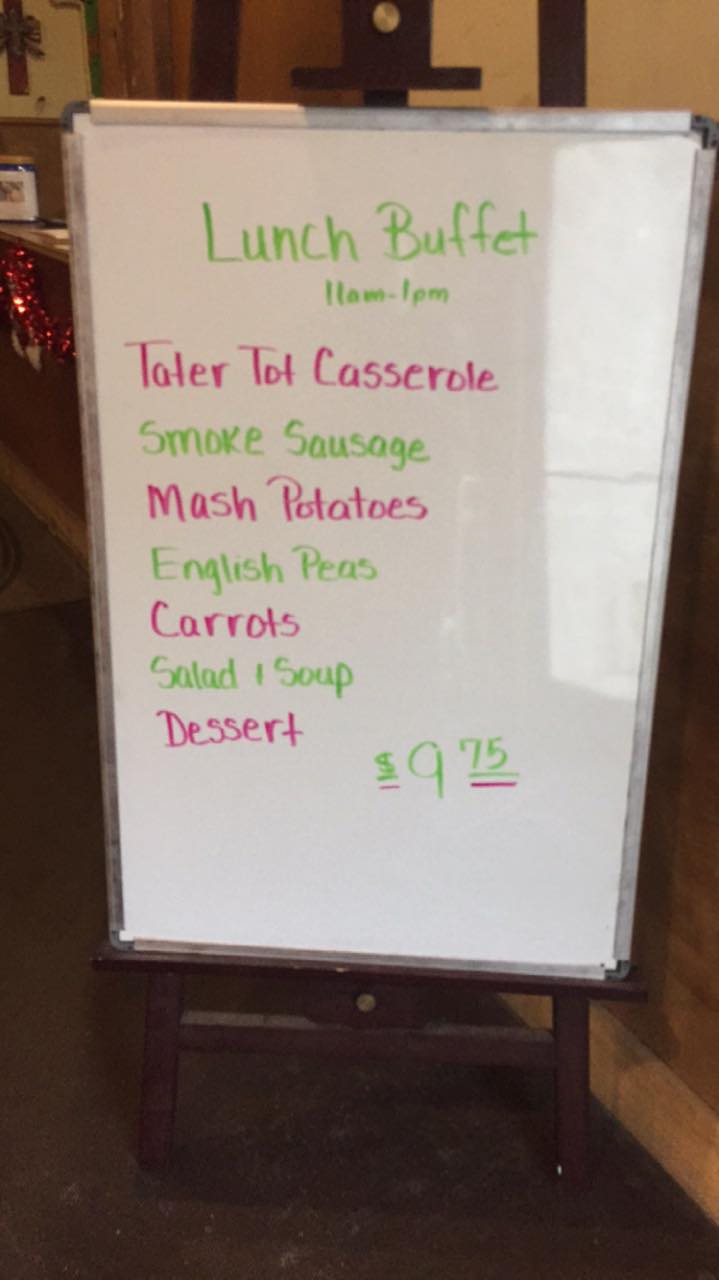 Lunch Buffet
11am-1pm
Tater Tot Casserole
Smoke Sausage
Mash Potatoes
English Peas
Carrots
Salad & Soup
Dessert
$9 75